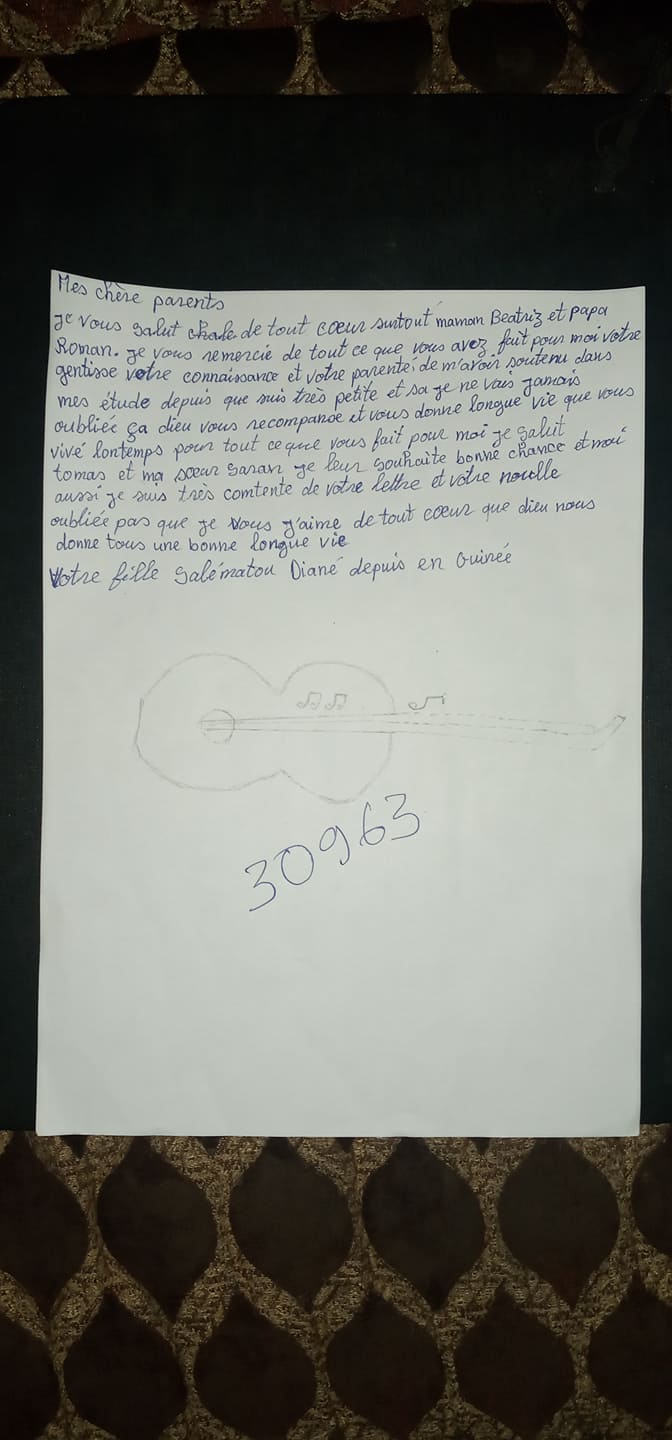 Mes chère parents
Je vous salut de tout cœur surtout maman Beatriz et papa
Roman. je vous remercie de tout ce que vous avez fait pour moi votre
gentisse votre connaissance et votre parenté de m'avoir soutenu dans
mes étude depuis que suis très petite et sa je ne vais jamais
oubliée ça dieu vous recompanse et vous donne longue vie que vous
vivé lontemps pour tout ce que vous fait pour moi je salut
tomas et ma sœur saran je leur souhaite bonne chance et moi
aussi je suis très comtente de votre lettre et votre noulle
oubliée pas que je vous j'aime de tout cœur que dieu nous
donne tous une bonne longue vie
Votre fille Salématou Diané depuis en Guinée
30963